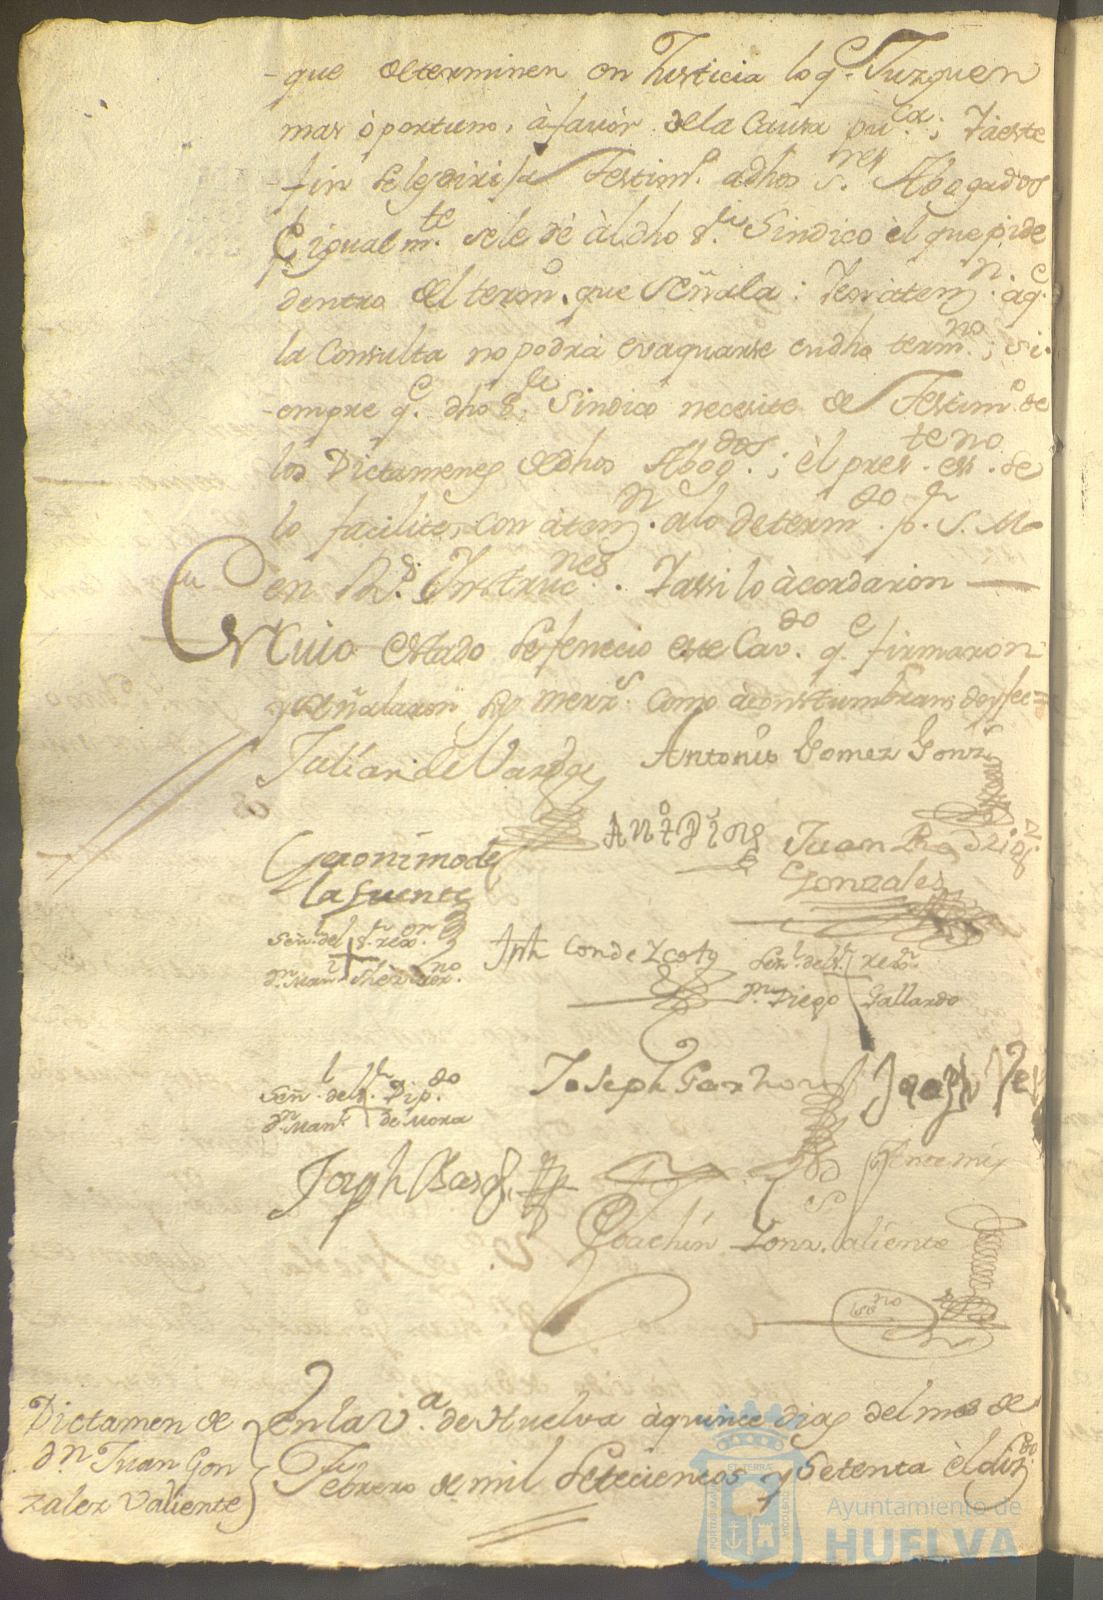 -que determinen en Justicia lo q.e Juzguen
mas òportuno, à favòr dela Causa pu.ca; Y àeste
-fin se les dirija Testim.o adhos s.res Abogados
è igual m.te se le dè àl dho s.or Sindico èl que pide
dentro del term.o que señala: Y en àten.n àq.e
la Consulta no podrà evaquarse en dho term.no; si-
-empre q.e dho s.or Sindico necesite de Testim.o de
los Dictamenes de dhos Abog.dos; èl pres.te es.no se
lo facilite, con àten.n alo determ.do p.r S. M.
en R.s Instruc.nes. Y assi lo àcordaron
En cuio estado se feneciò este Cav.do q.e firmaron
y señalaron sus merz.s como àcostumbran doy fee=
Julian de
Antonio Gomez Gonz.s
Geronimo de
la fuente
Juan Rodrig.z
Gonzales
Señ.l del s.r rex.or
d.n Man.l
Conde
Señ.l del s.r rex.or
D.n Diego Gallardo
Señ.l del s.r Dip.do
d.n Man.l de Mora
Joseph Garzon
Joseph
Ante mi
Joachin Gonz. Valiente
esc.no
Dictamen de
d.n Juan Gon
zalez Valiente
En la V.a de Huelva à quince dias del mes de
Febrero de mil Setecientos y Setenta èl
Ayuntamiento de
HUELVA